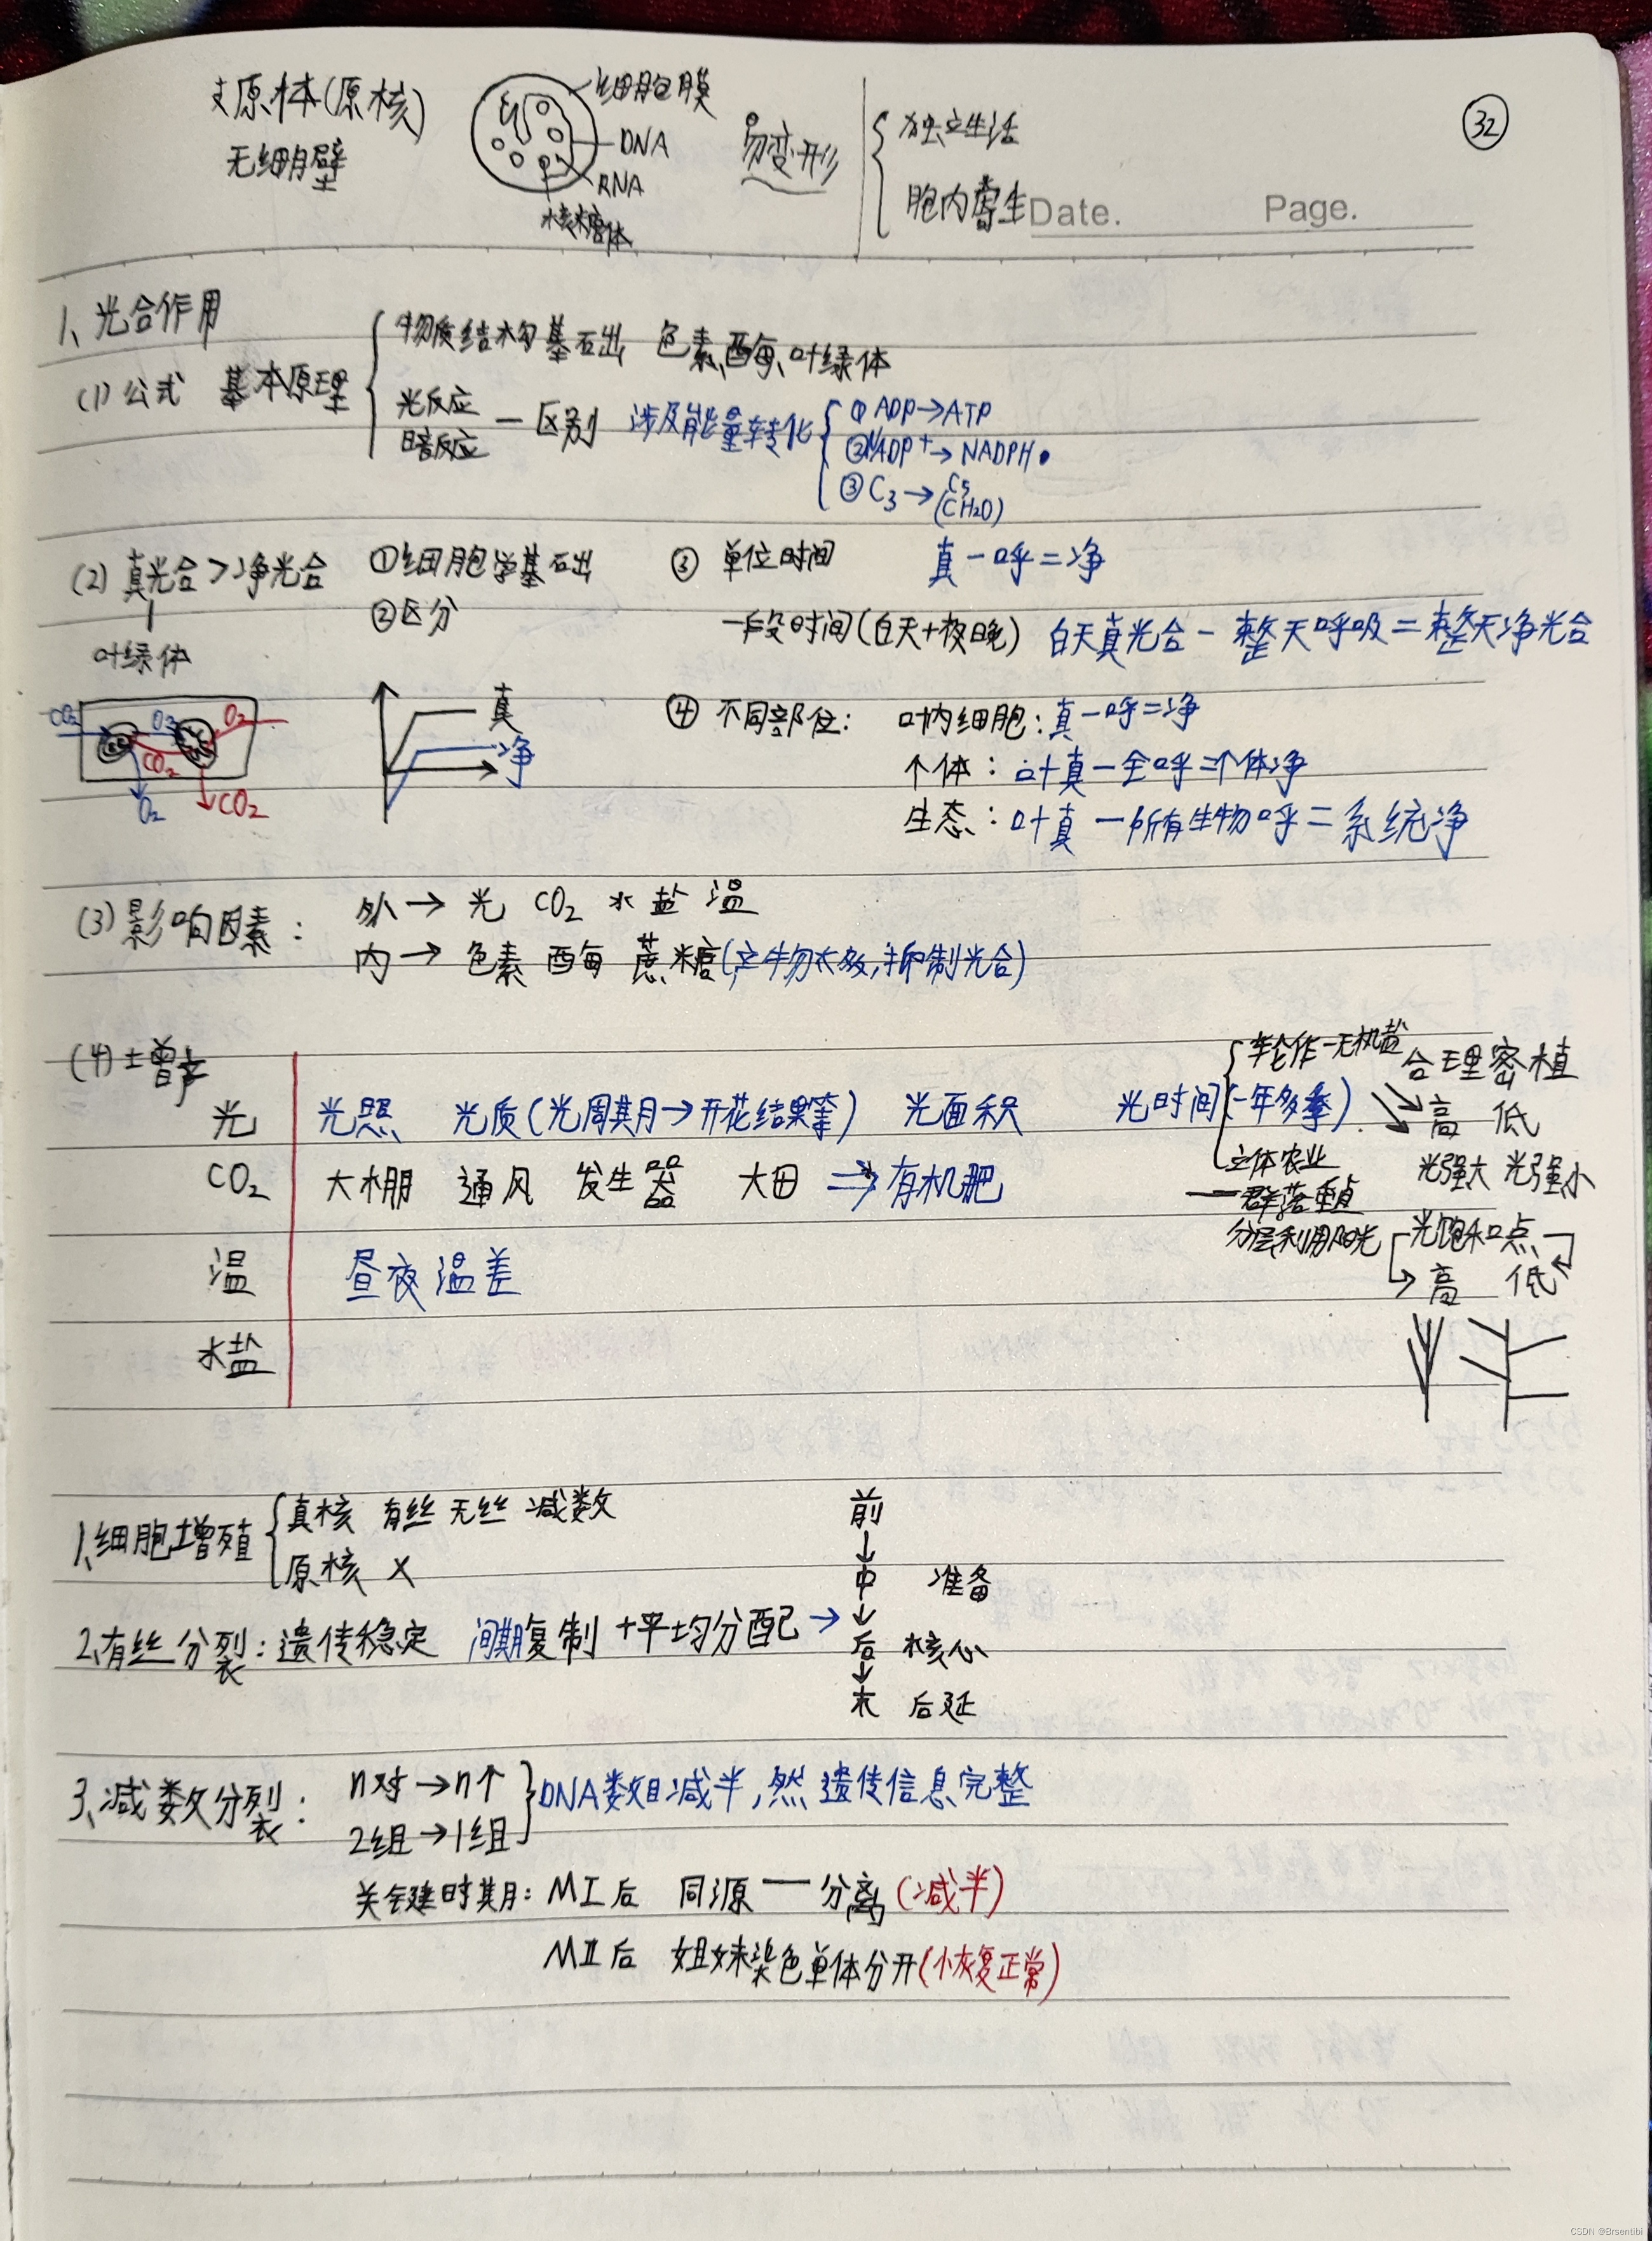 支原体(原核)
无细胞壁
细胞膜
DNA
RNA
核糖体
易变形
独立生活
胞内寄生
32
Date. Page.
1、光合作用
(1)公式 基本原理
物质结构基础 色素、酶、叶绿体
光反应
暗反应
— 区别 涉及能量转化
① ADP→ATP
② NADP⁺→NADPH
③ C₃→C₅
(CH₂O)
(2) 真光合>净光合 ①细胞学基础 ③ 单位时间 真-呼=净
②区分 一段时间(白天+夜晚) 白天真光合-整天呼吸=整天净光合
叶绿体
CO₂ O₂ O₂
CO₂
O₂ CO₂
真
净
④ 不同部位: 叶肉细胞:真-呼=净
个体: 叶真-全呼=个体净
生态: 叶真-所有生物呼=系统净
(3)影响因素: 外→ 光 CO₂ 水 盐 温
内→ 色素 酶 蔗糖(产物太多,抑制光合)
(4)增产
光 光照 光质(光周期→开花结果等) 光面积 光时间(一年多季)
CO₂ 大棚 通风 发生器 大田 ⇒有机肥
温 昼夜温差
水盐
轮作-无机盐
立体农业
—群落垂直
分层利用阳光
合理密植
高 低
光强大 光强小
光饱和点
高 低
1、细胞增殖
真核 有丝 无丝 减数
原核 X
2、有丝分裂:遗传稳定 间期复制+平均分配→
前
↓
中 准备
↓
后 核心
↓
末 后延
3、减数分裂:
n对→n个
2组→1组
DNA数目减半,然遗传信息完整
关键时期: MⅠ后 同源—分离(减半)
MⅡ后 姐妹染色单体分开(恢复正常)
CSDN @Brsentibi